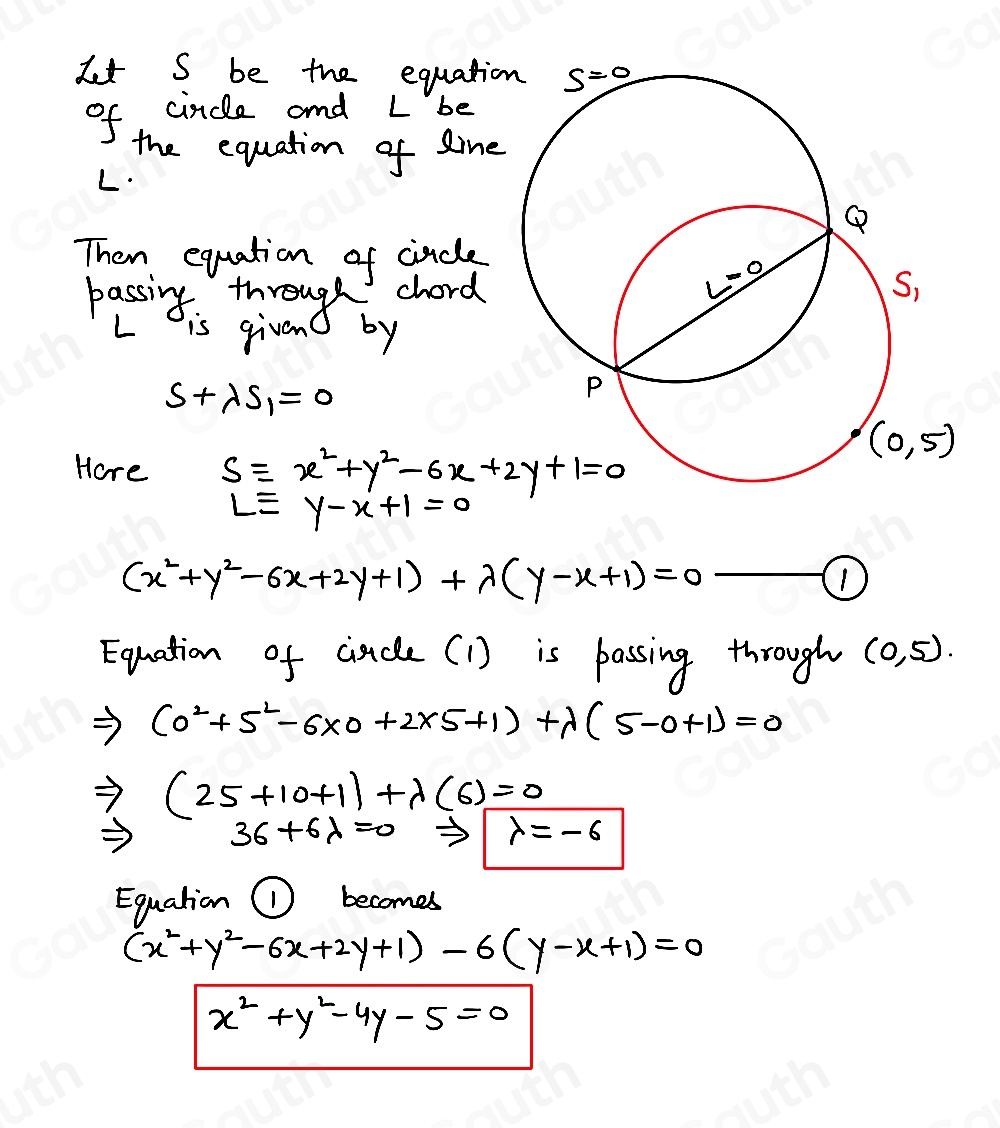 Let S be the equation
of circle and L be
the equation of line
L.
S=0
Q
L=0
S₁
P
(0,5)
Then equation of circle
passing through chord
L is given by
S+λS₁=0
Here S≡ x²+y²-6x+2y+1=0
L≡ y-x+1=0
(x²+y²-6x+2y+1) + λ(y-x+1)=0 ——— ①
Equation of circle (1) is passing through (0,5).
⇒ (0²+5²-6×0+2×5+1) +λ(5-0+1)=0
⇒ (25+10+1)+λ(6)=0
⇒ 36+6λ=0 ⇒ λ=-6
Equation ① becomes
(x²+y²-6x+2y+1) -6(y-x+1)=0
x²+y²-4y-5=0
Gauth